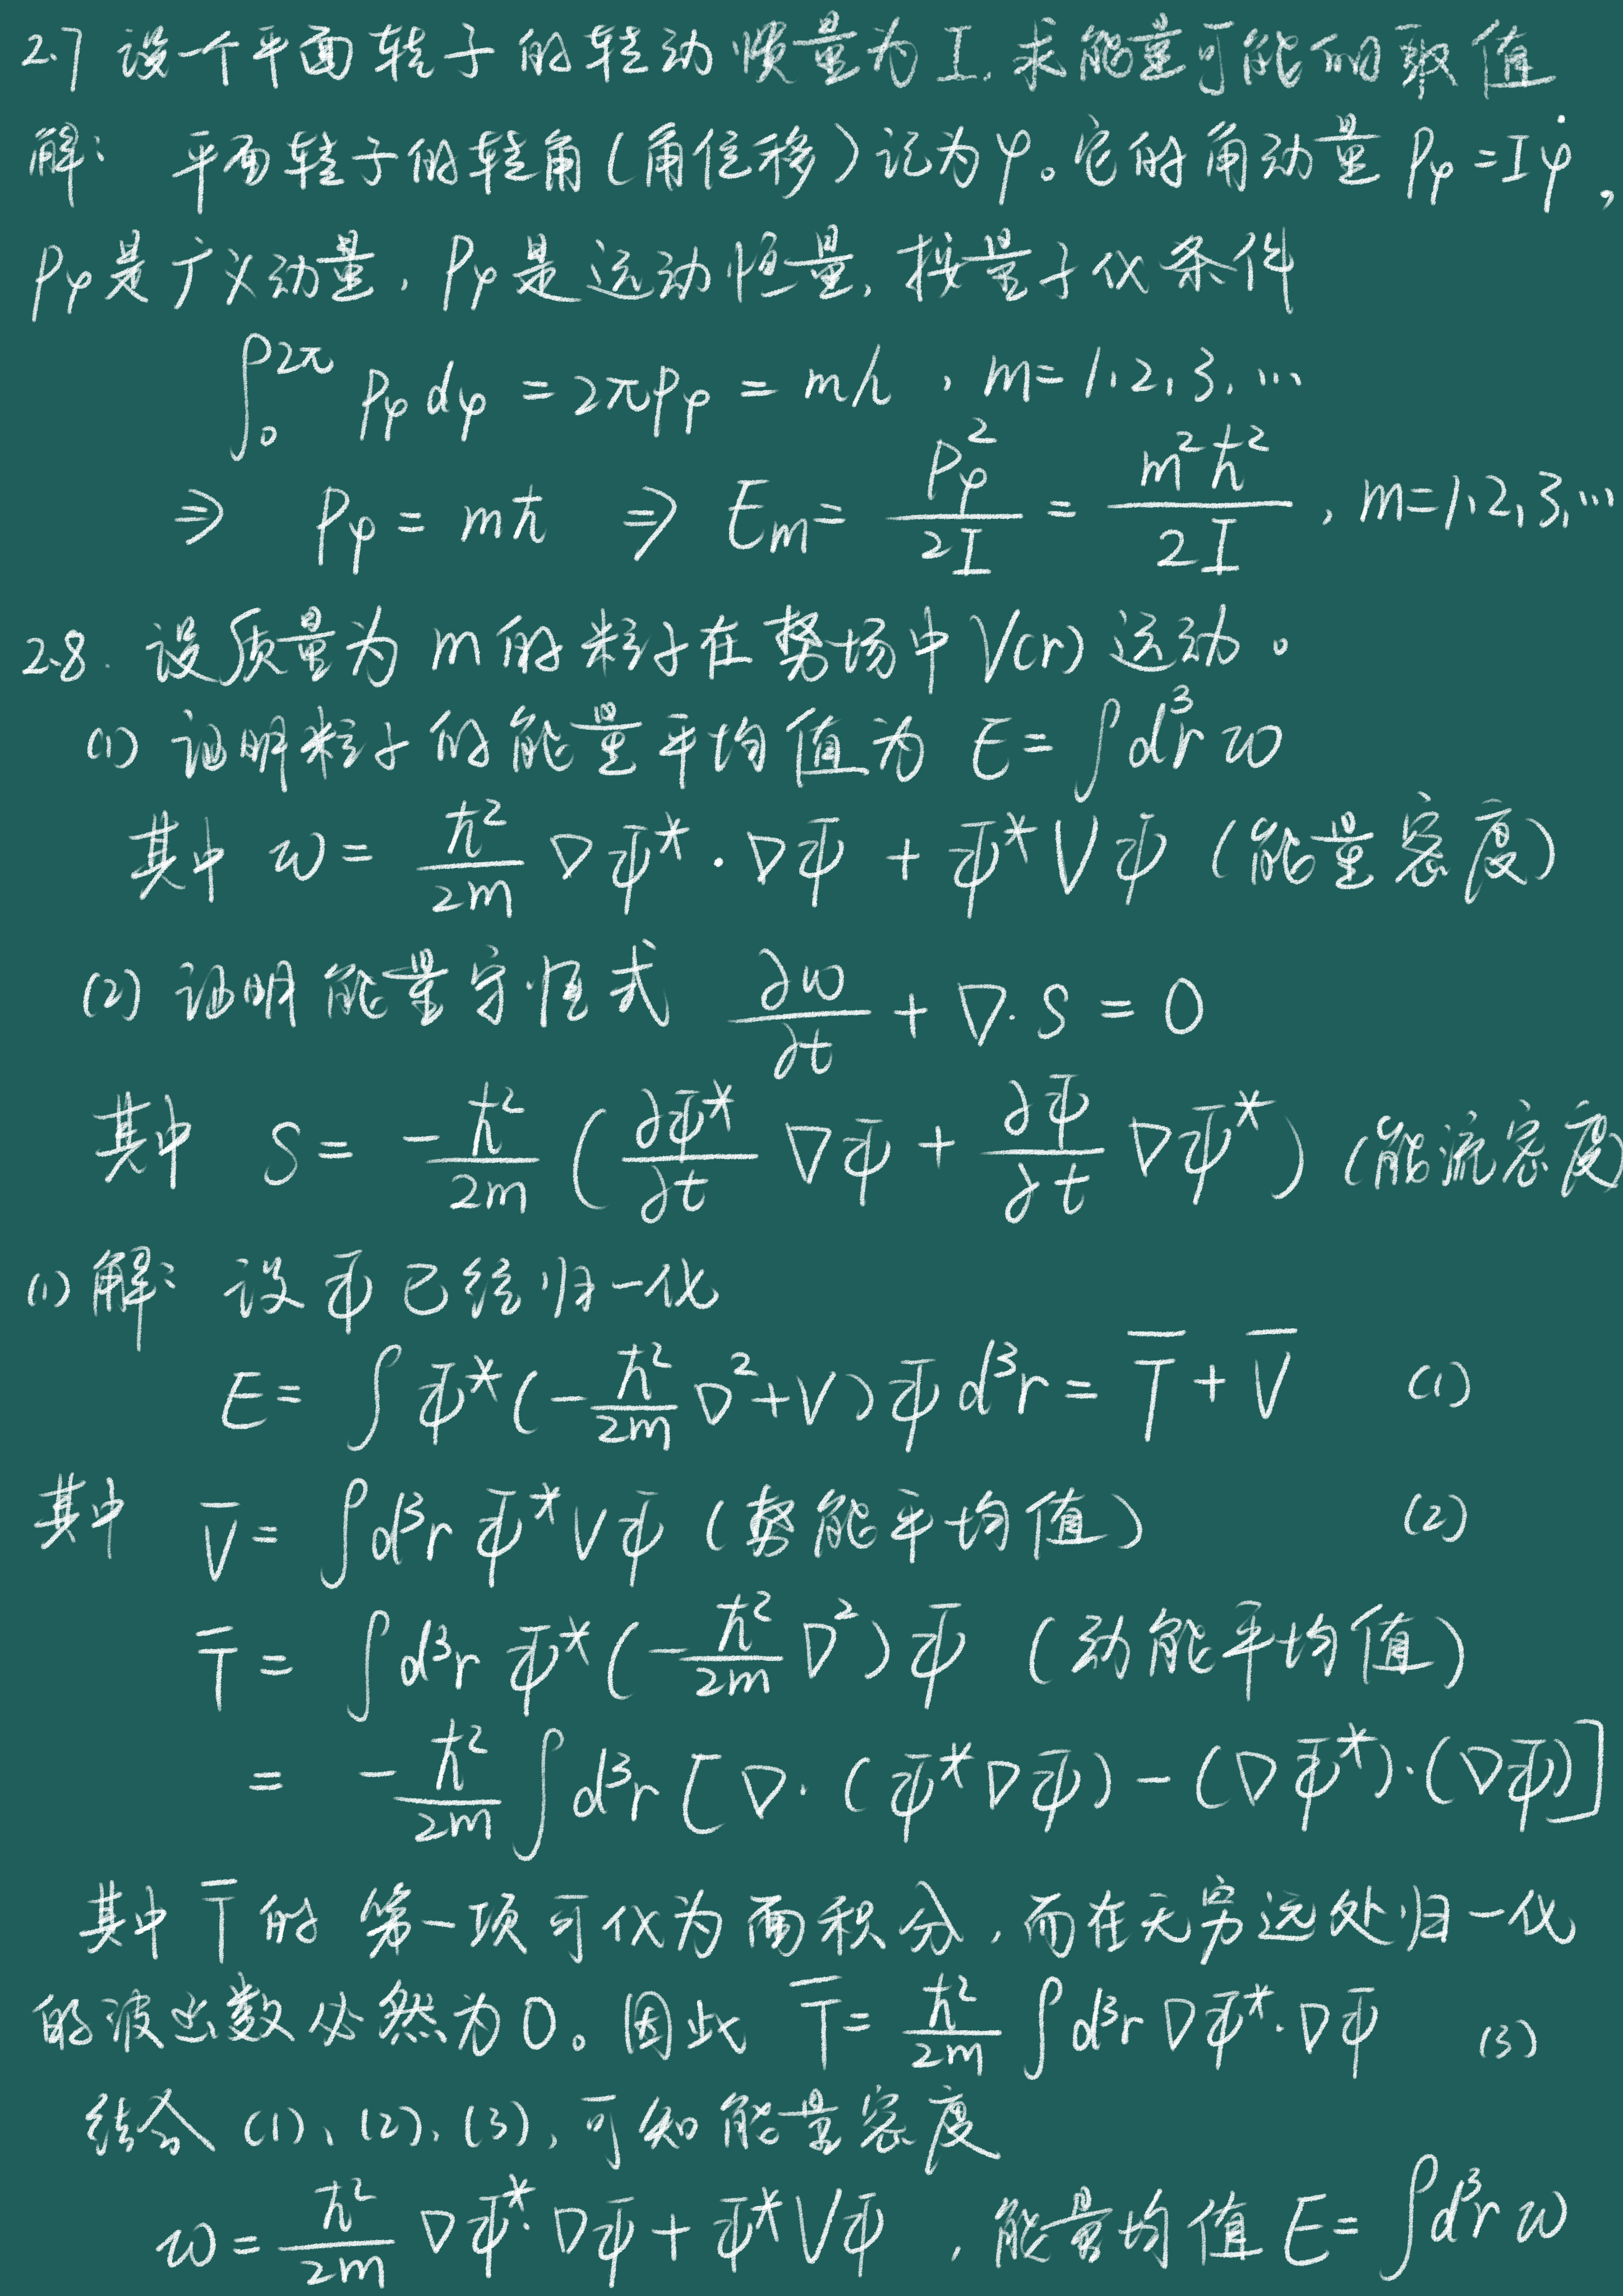 2.7 设一个平面转子的转动惯量为I,求能量可能的取值
解: 平面转子的转角(角位移)记为φ。它的角动量 Pφ = Iφ̇,
Pφ是广义动量, Pφ是运动恒量, 按量子化条件
∫₀^{2π} Pφ dφ = 2πPφ = mh , m=1,2,3,…
⇒ Pφ = mħ ⇒ Em = Pφ²/2I = m²ħ²/2I , m=1,2,3,…
2.8. 设质量为m的粒子在势场中V(r)运动。
(1) 证明粒子的能量平均值为 E = ∫d³r w
其中 w = ħ²/2m ∇ψ*·∇ψ + ψ*Vψ (能量密度)
(2) 证明能量守恒式 ∂w/∂t + ∇·S = 0
其中 S = -ħ²/2m (∂ψ*/∂t ∇ψ + ∂ψ/∂t ∇ψ*) (能流密度)
(1)解: 设ψ已经归一化
E = ∫ψ*(-ħ²/2m ∇²+V)ψ d³r = T̄ + V̄ (1)
其中 V̄ = ∫d³r ψ*Vψ (势能平均值) (2)
T̄ = ∫d³r ψ*(-ħ²/2m ∇²)ψ (动能平均值)
= -ħ²/2m ∫d³r [∇·(ψ*∇ψ) - (∇ψ*)·(∇ψ)]
其中T̄的第一项可化为面积分,而在无穷远处归一化
的波函数必然为0。因此 T̄ = ħ²/2m ∫d³r ∇ψ*·∇ψ (3)
结合(1)、(2)、(3),可知能量密度
w = ħ²/2m ∇ψ*·∇ψ + ψ*Vψ , 能量均值 E = ∫d³r w